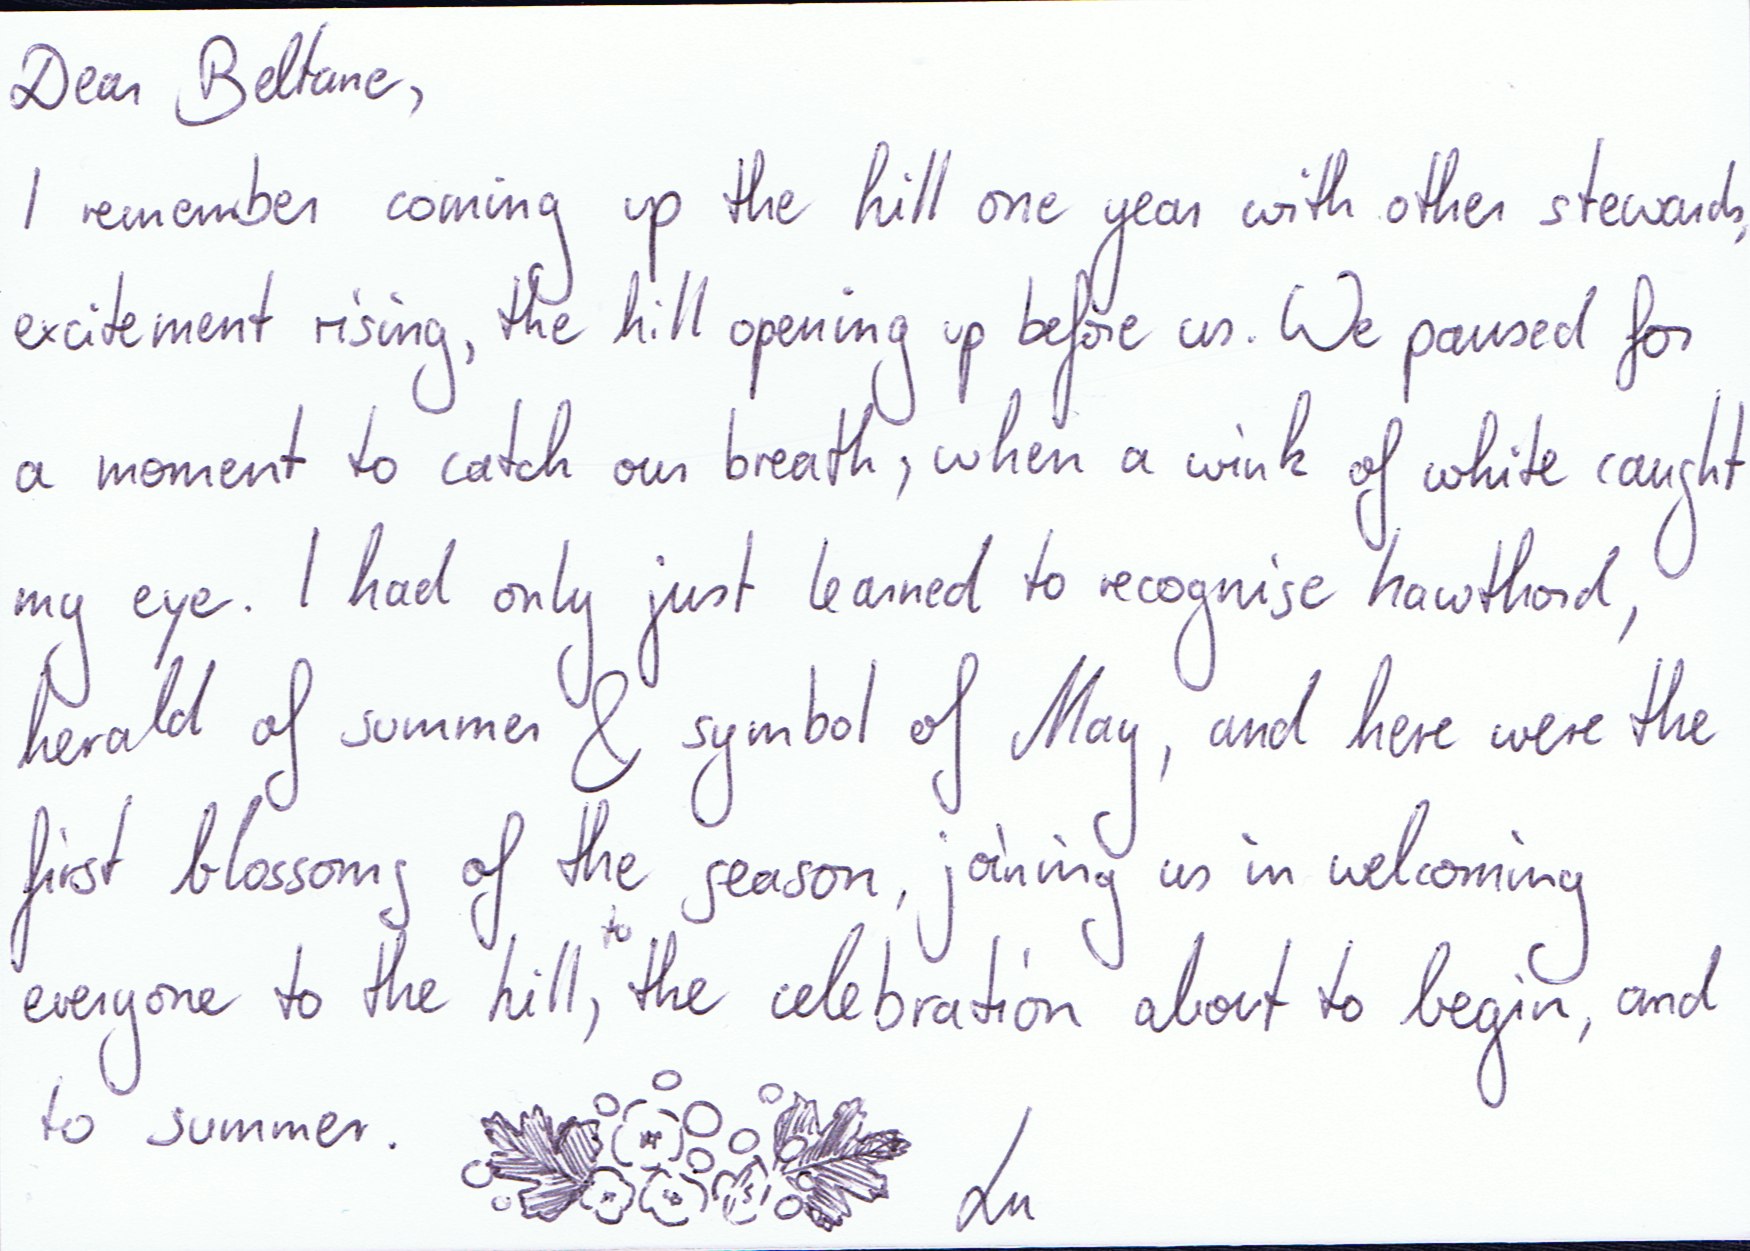 Dear Beltane,
I remember coming up the hill one year with other stewards,
excitement rising, the hill opening up before us. We paused for
a moment to catch our breath, when a wink of white caught
my eye. I had only just learned to recognise hawthord,
herald of summer & symbol of May, and here were the
first blossoms of the season, joining us in welcoming
everyone to the hill, to the celebration about to begin, and
to summer.
Lu